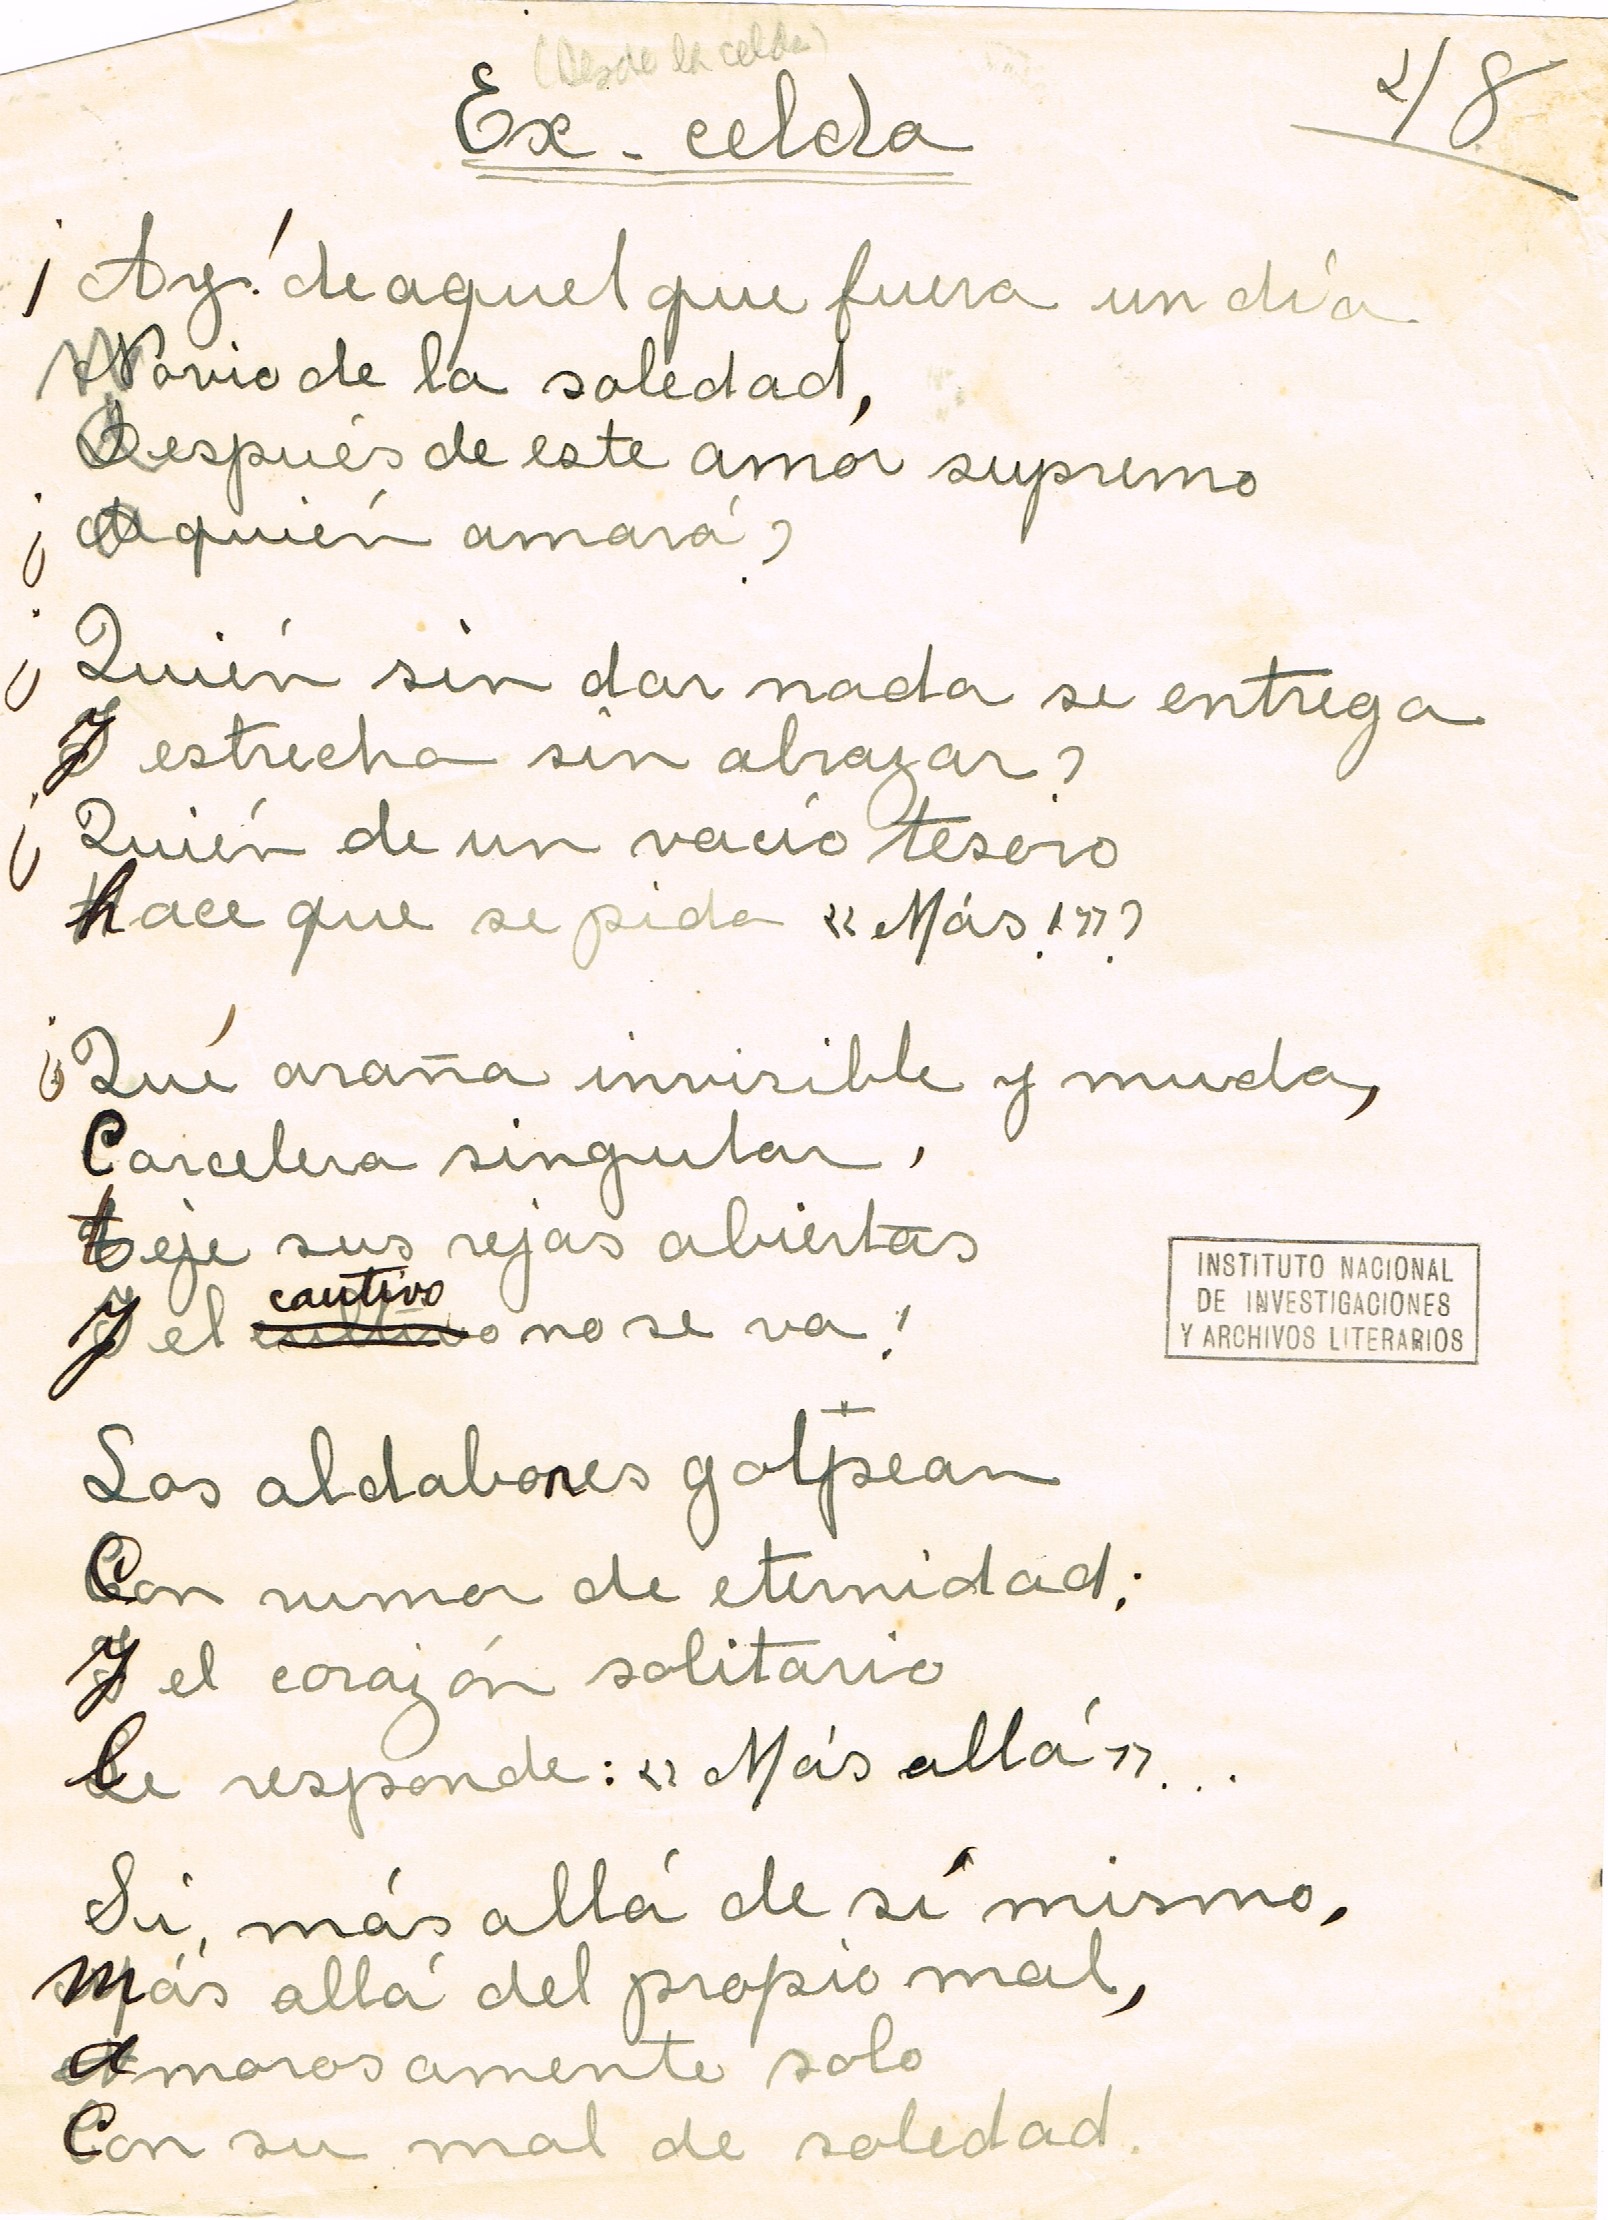 (Desde la celda)
Ex-celda
48
¡Ay! de aquel que fuera un día
Novio de la soledad,
Después de este amor supremo
¿a quién amará?
¿Quién sin dar nada se entrega
y estrecha sin abrazar?
¿Quién de un vacío tesoro
hace que se pida «Más!»?
¿Qué araña invisible y muda,
Carcelera singular,
teje sus rejas abiertas
cautivo
y el no se va!
Los aldabones golpean
Con rumor de eternidad;
y el corazón solitario
le responde: «Más allá»...
Si, más allá de sí mismo,
más allá del propio mal,
amorosamente solo
Con su mal de soledad.
INSTITUTO NACIONAL
DE INVESTIGACIONES
Y ARCHIVOS LITERARIOS